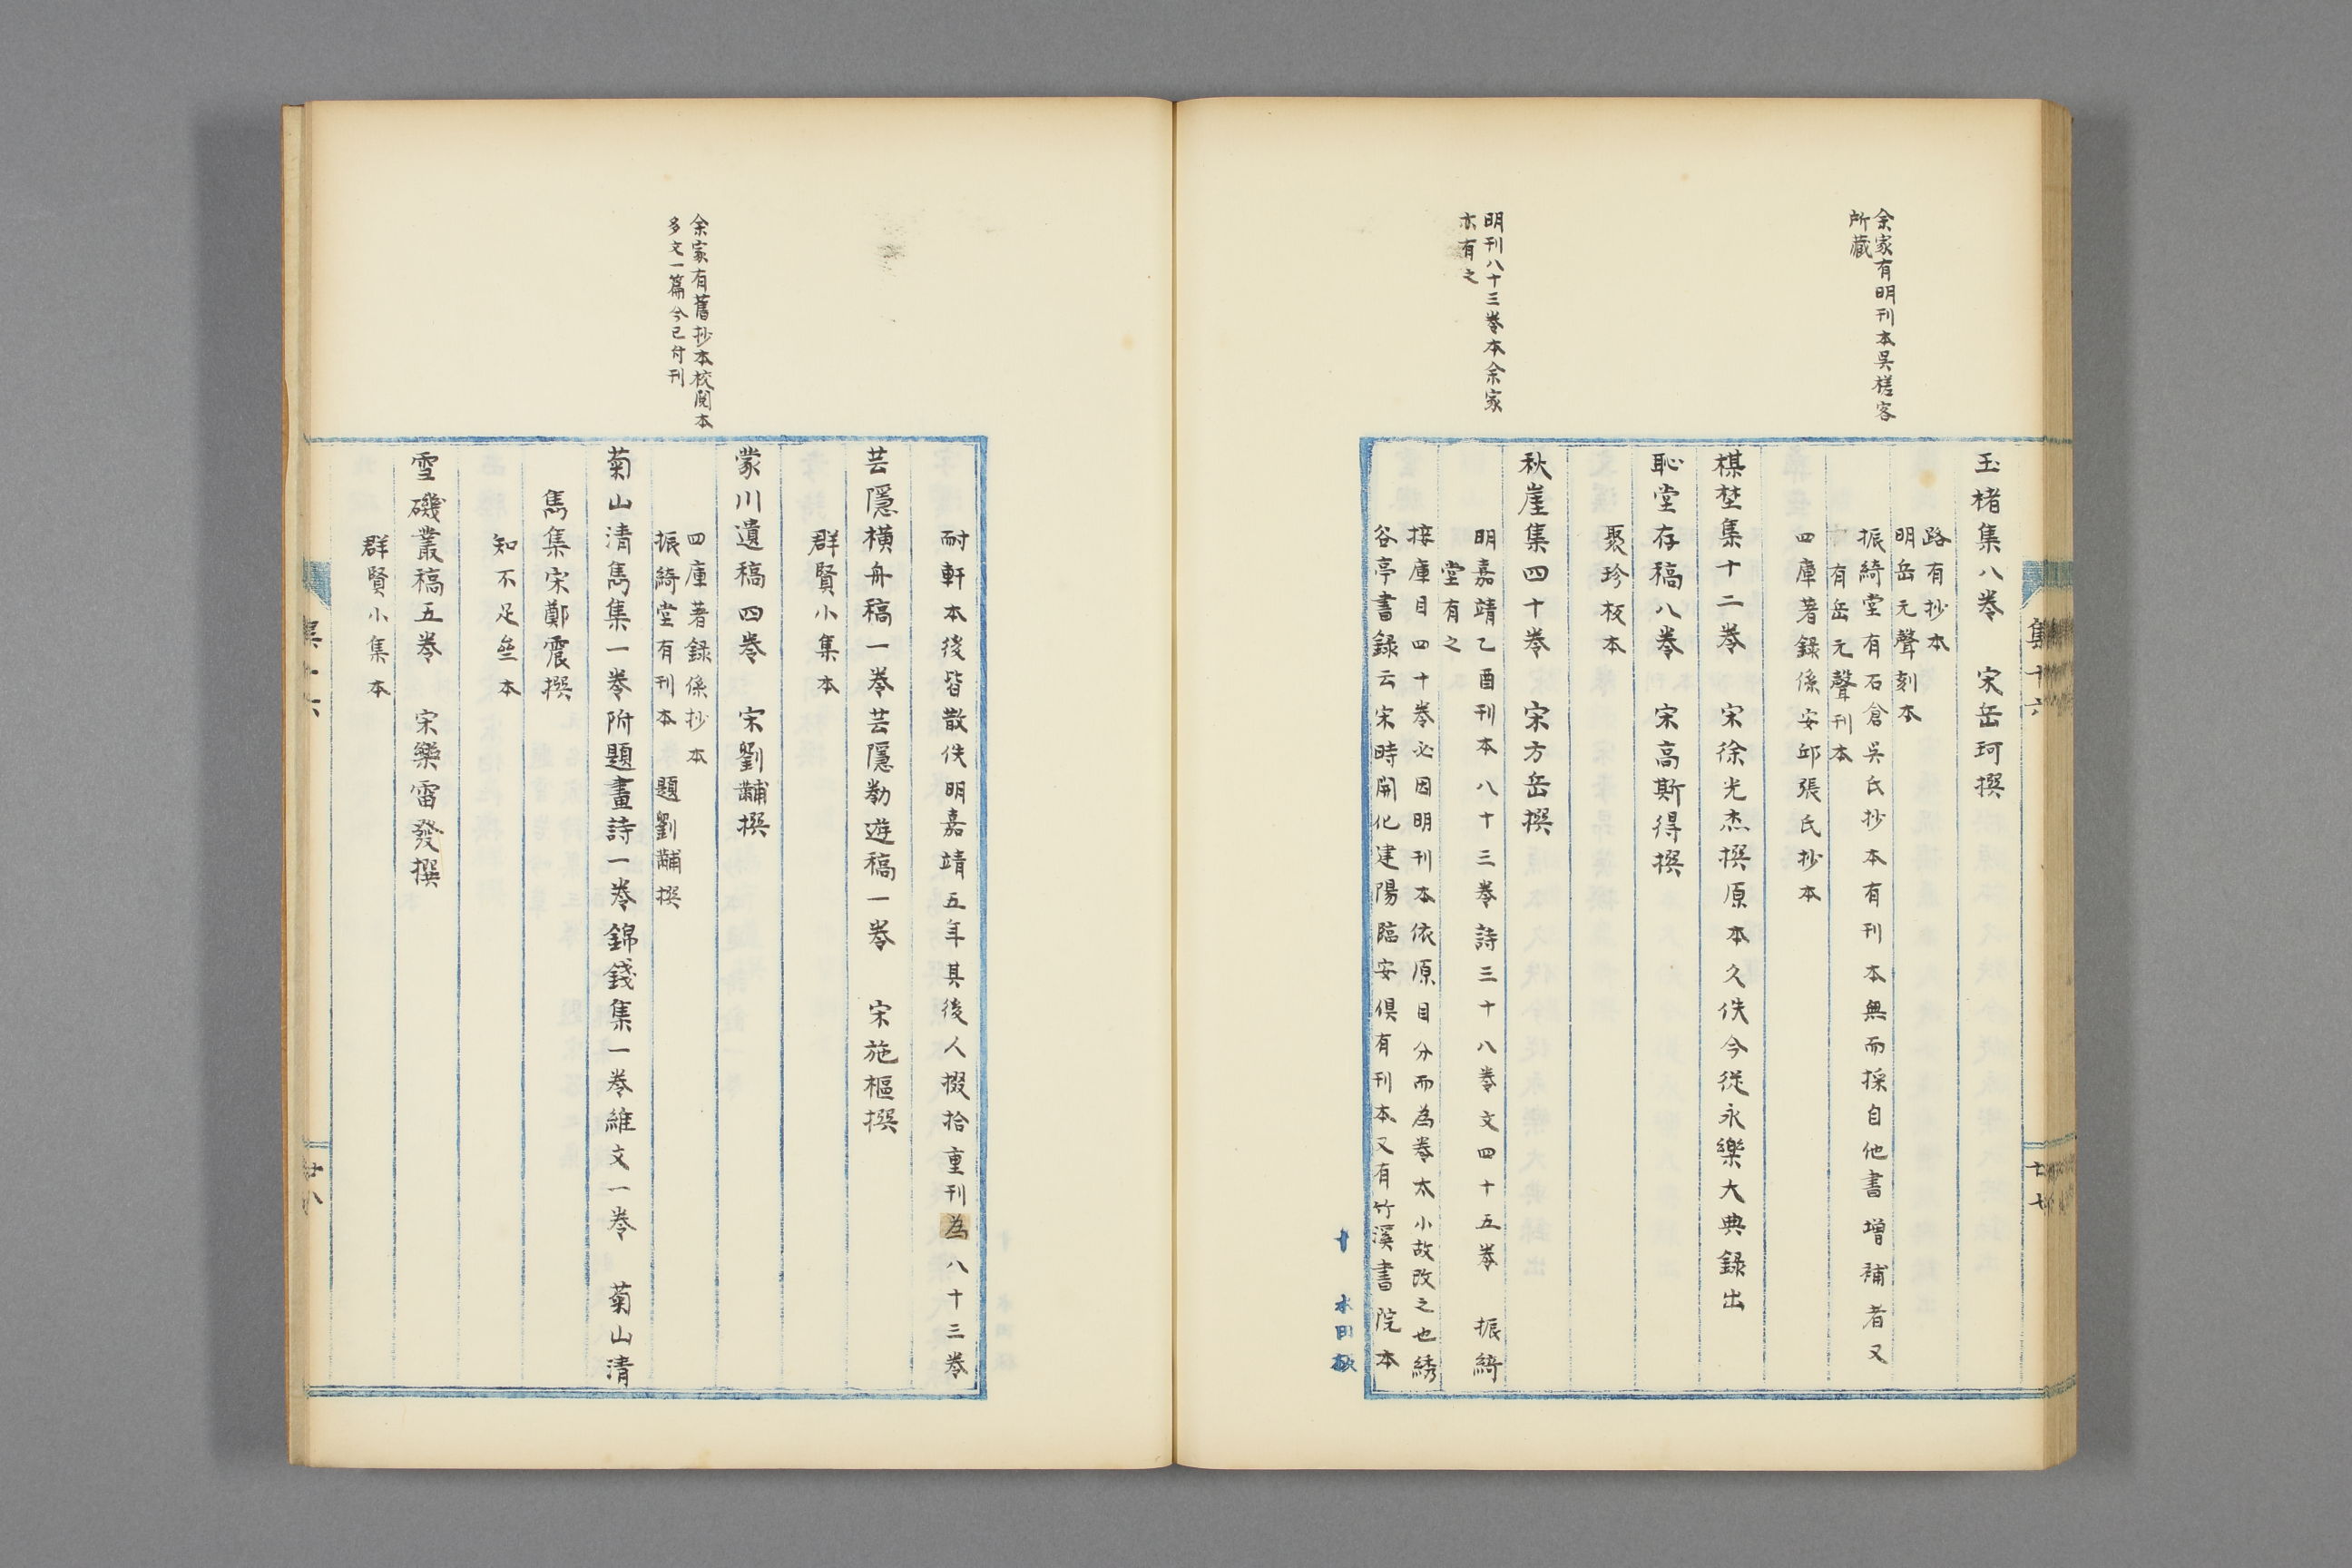 余家有明刊本吳槎客
所藏
明刊八十三卷本余家
亦有之
玉楮集八卷　宋岳珂撰
路有抄本
明岳元聲刻本
振綺堂有石倉吳氏抄本有刊本無而採自他書增補者又
有岳元聲刊本
四庫著録係安邱張氏抄本
楳埜集十二卷　宋徐光杰撰原本久佚今從永樂大典録出
恥堂存稿八卷　宋高斯得撰
聚珍板本
秋崖集四十卷　宋方岳撰
明嘉靖乙酉刊本八十三卷詩三十八卷文四十五卷　振綺
堂有之
接庫目四十卷必因明刊本依原目分而為卷太小故改之也綉
谷亭書録云宋時開化建陽臨安俱有刊本又有竹溪書院本
集十六
廿七
余家有舊抄本校閣本
多文一篇今已付刊
耐軒本後皆散佚明嘉靖五年其後人掇拾重刊為八十三卷
芸隱横舟稿一卷芸隱勌遊稿一卷　宋施樞撰
群賢小集本
蒙川遺稿四卷　宋劉黼撰
四庫著録係抄本
振綺堂有刊本　題劉黼撰
菊山清雋集一卷附題畫詩一卷錦錢集一卷雜文一卷　菊山清
雋集宋鄭震撰
知不足亝本
雪磯叢稿五卷　宋樂雷發撰
群賢小集本
集十六
廿八